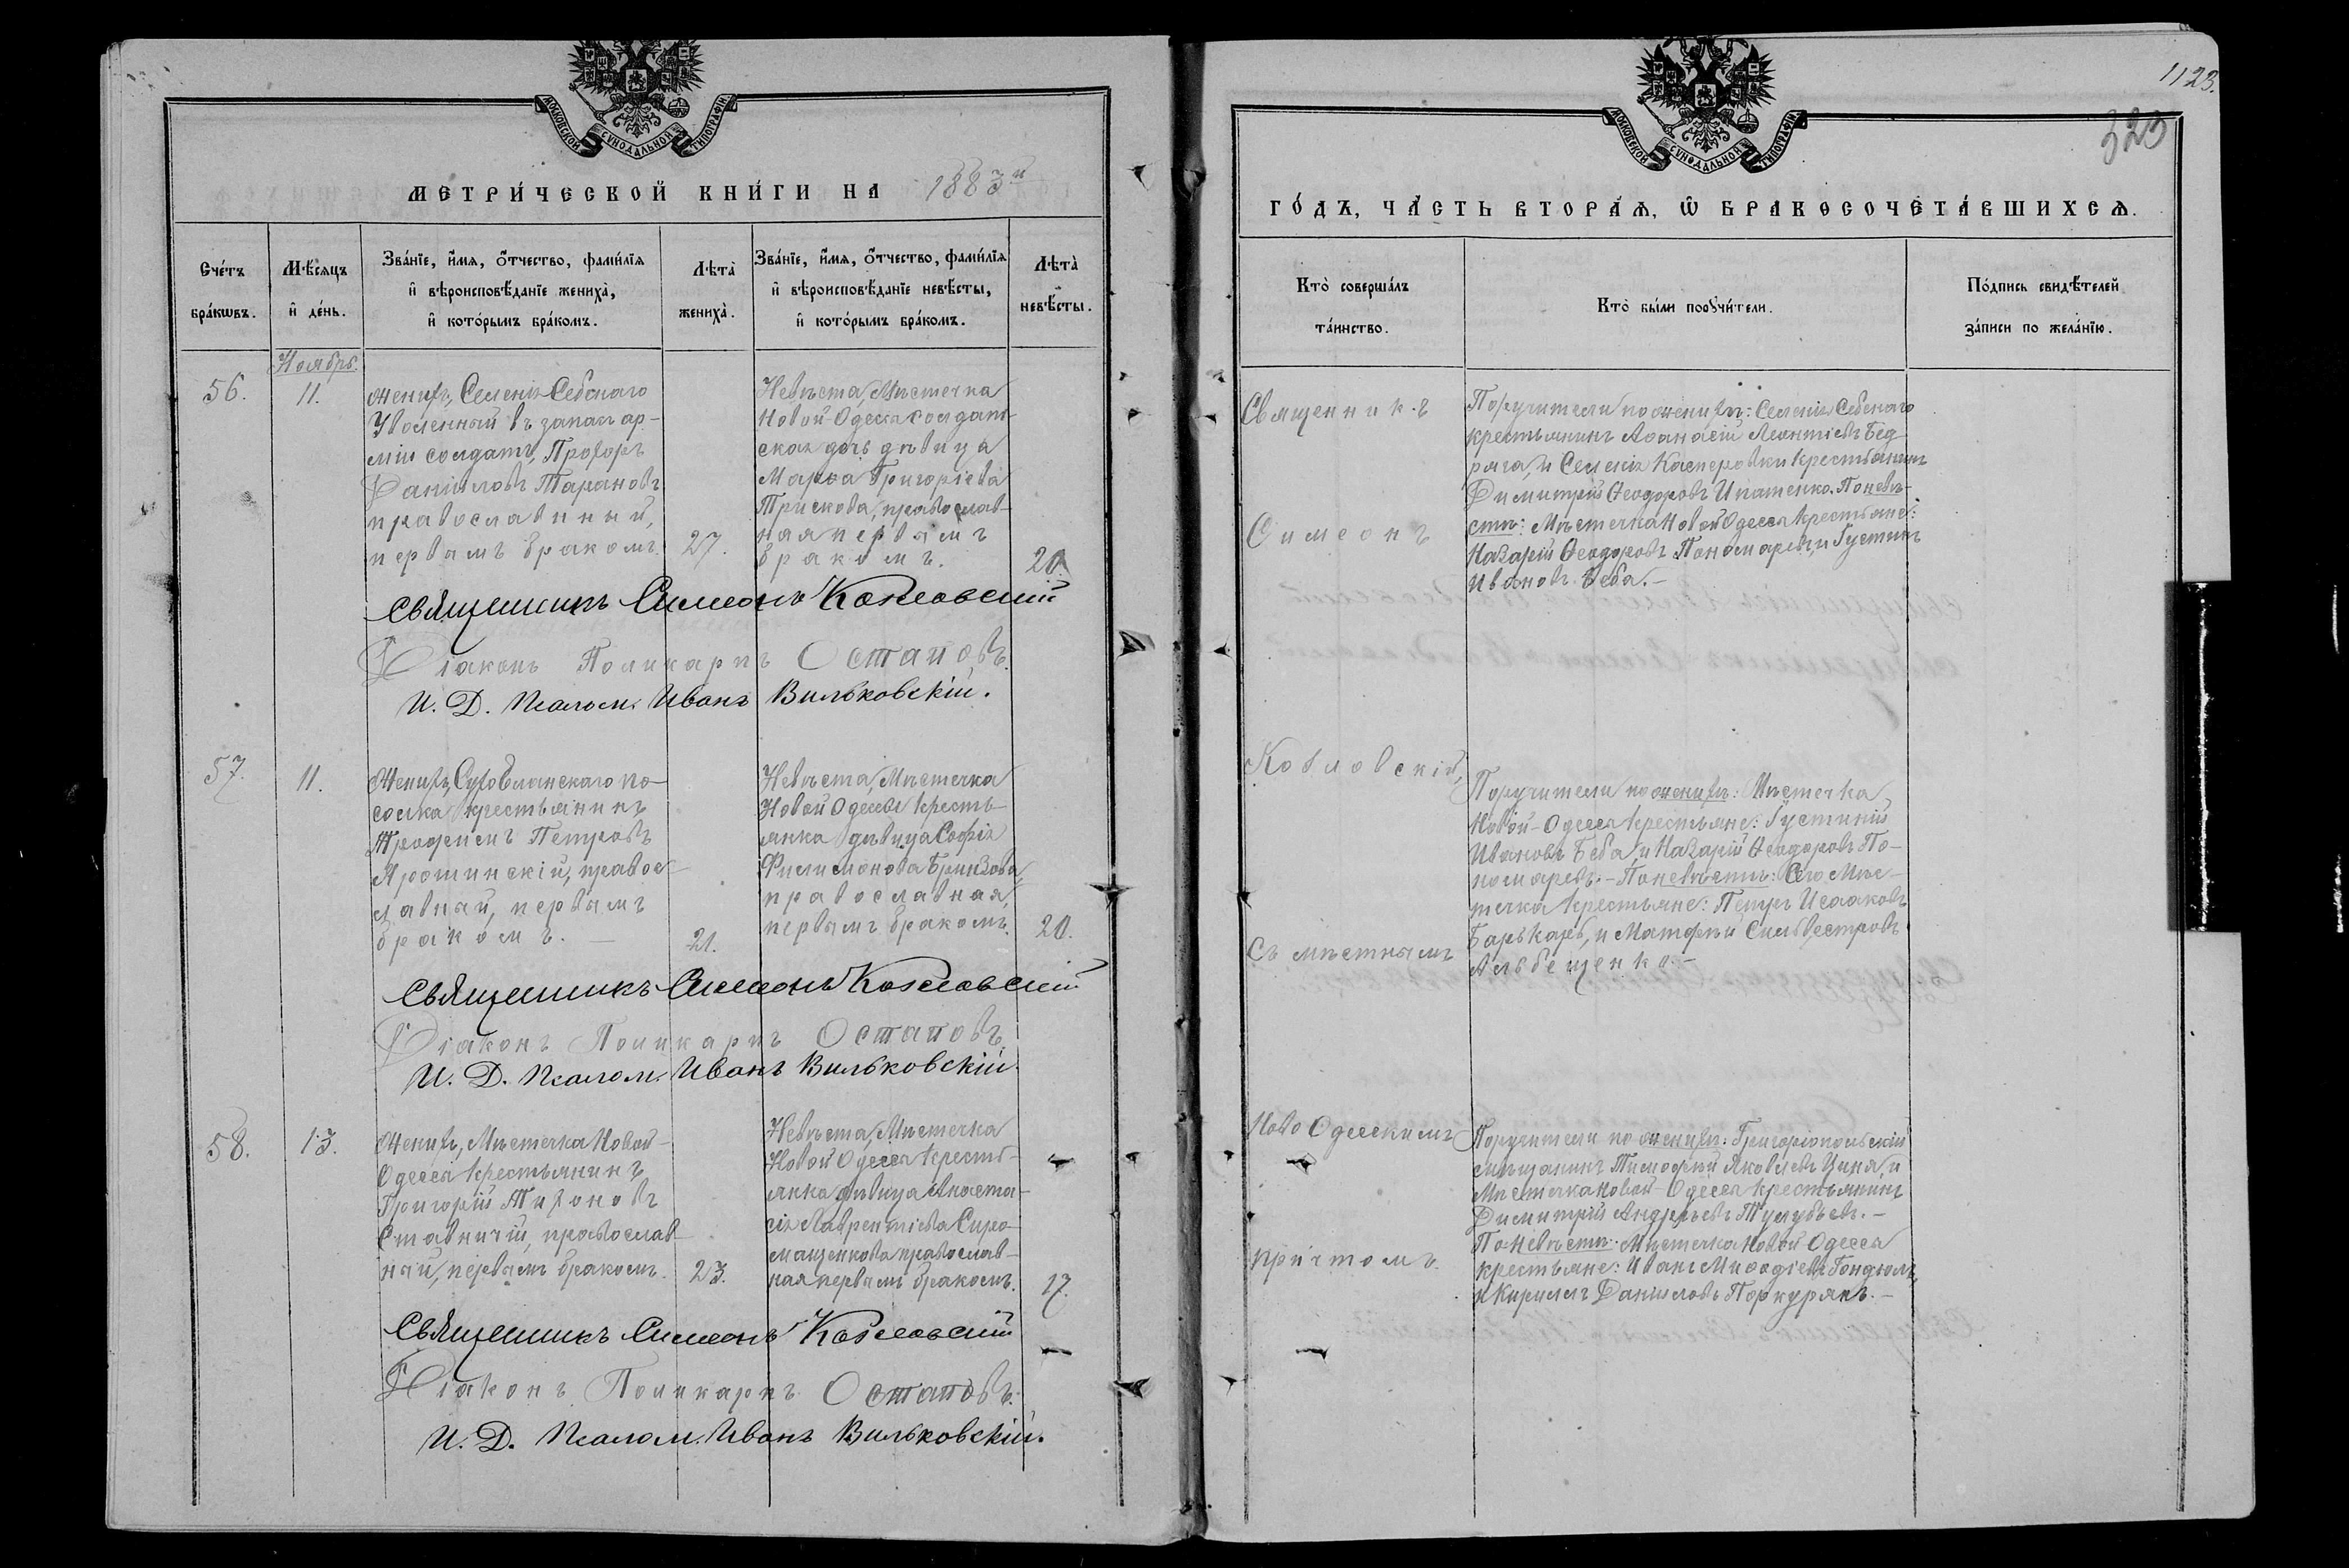 МОСКОВСКОЙ СѴНОДАЛЬНОЙ ТИПОГРАФІИ
МЕТРИ́ЧЕСКОЙ КНИ́ГИ НА 1883й
Сче́тъ
бра́кѡвъ.
Мѣ́сяцъ
и҆ де́нь.
Зва́нїе, и҆́мѧ, о҆́тчество, фами́лїѧ
и҆ вѣроисповѣ́данїе жениха̀,
и҆ кото́рымъ бра́комъ.
Лѣта̀
жениха̀.
Зва́нїе, и҆́мѧ, о҆́тчество, фами́лїѧ
и҆ вѣроисповѣ́данїе невѣ́сты,
и҆ кото́рымъ бра́комъ.
Лѣта̀
невѣ́сты.
Ноябрь.
56.
11.
Женихъ, Селенія Себскаго
Уволенный въ запасъ ар-
міи солдатъ, Прохоръ
Даниловъ Тарановъ
православный,
первымъ бракомъ.
27.
Невѣста, Мѣстечка
Новой Одессы солдат-
ская дочь дѣвица
Марѳа Григоріева
Трискова, православ-
ная первымъ
бракомъ.
20.
Священникъ Симеонъ Козловскій
Діаконъ Поликарпъ Остаповъ.
И. Д. Псалом. Иванъ Вильковскій.
57.
11.
Женихъ, Сухоеланскаго по-
селка крестьянинъ
Трофимъ Петровъ
Ярошинскій, правос-
лавный, первымъ
бракомъ. —
21.
Невѣста, Мѣстечка
Новой Одессы кресть-
янка дѣвица Софія
Филимонова Бринзова,
православная,
первымъ бракомъ.
20.
Священникъ Симеонъ Козловскій
Діаконъ Поликарпъ Остаповъ.
И. Д. Псалом. Иванъ Вильковскій.
58.
13.
Женихъ, Мѣстечка Новой-
Одесса крестьянинъ
Григорій Тихоновъ
Ставничій, православ-
ный, первымъ бракомъ.
23.
Невѣста, Мѣстечка
Новой Одесса кресть-
янка дѣвица Анаста-
сія Лаврентіева Сиро-
мащенкова православ-
ная первымъ бракомъ.
17.
Священникъ Симеонъ Козловскій
Діаконъ Поликарпъ Остаповъ.
И. Д. Псалом. Иванъ Вильковскій.
1123.
323
МОСКОВСКОЙ СѴНОДАЛЬНОЙ ТИПОГРАФІИ
ГО́ДЪ, ЧА́СТЬ ВТОРА́Ѧ, Ѡ҆ БРАКОСОЧЕТА́ВШИХСѦ.
Кто̀ соверша́лъ
та́инство.
Кто̀ бы́ли порꙋчи́тели.
По́дпись свидѣ́телей
за́писи по жела́нїю.
Священникъ
Симеонъ
Козловскій,
Съ мѣстнымъ
Ново Одесскимъ
причтомъ.
Поручители по женихѣ: Селенія Себскаго
крестьянинъ Аѳанасій Леонтіевъ Бед-
рага, и Селенія Касперовки крестьянинъ
Димитрій Ѳеодоровъ Ипатенко. По невѣ-
стѣ: Мѣстечка Новой Одесса крестьяне:
Назарій Ѳеодоровъ Пономаревъ, и Густинъ
Ивановъ Беба. —
Поручители по женихѣ: Мѣстечка
Новой-Одесса крестьяне: Густиній
Ивановъ Беба, и Назарій Ѳеодоровъ По-
номаревъ. — По невѣстѣ: Сего Мѣс-
течка крестьяне: Петръ Исааковъ
Барькарь, и Матѳей Сильвестровъ
Альбещенко. —
Поручители по женихѣ: Григоріопольскій
мѣщанинъ Тимоѳей Яковлевъ Цыня, и
Мѣстечка Новой-Одесса крестьянинъ
Димитрій Андреевъ Тулубьевъ. —
По невѣстѣ: Мѣстечка Новой Одесса
крестьяне: Иванъ Миѳодіевъ Гондюлъ,
и Кириллъ Даниловъ Поркурякъ. —